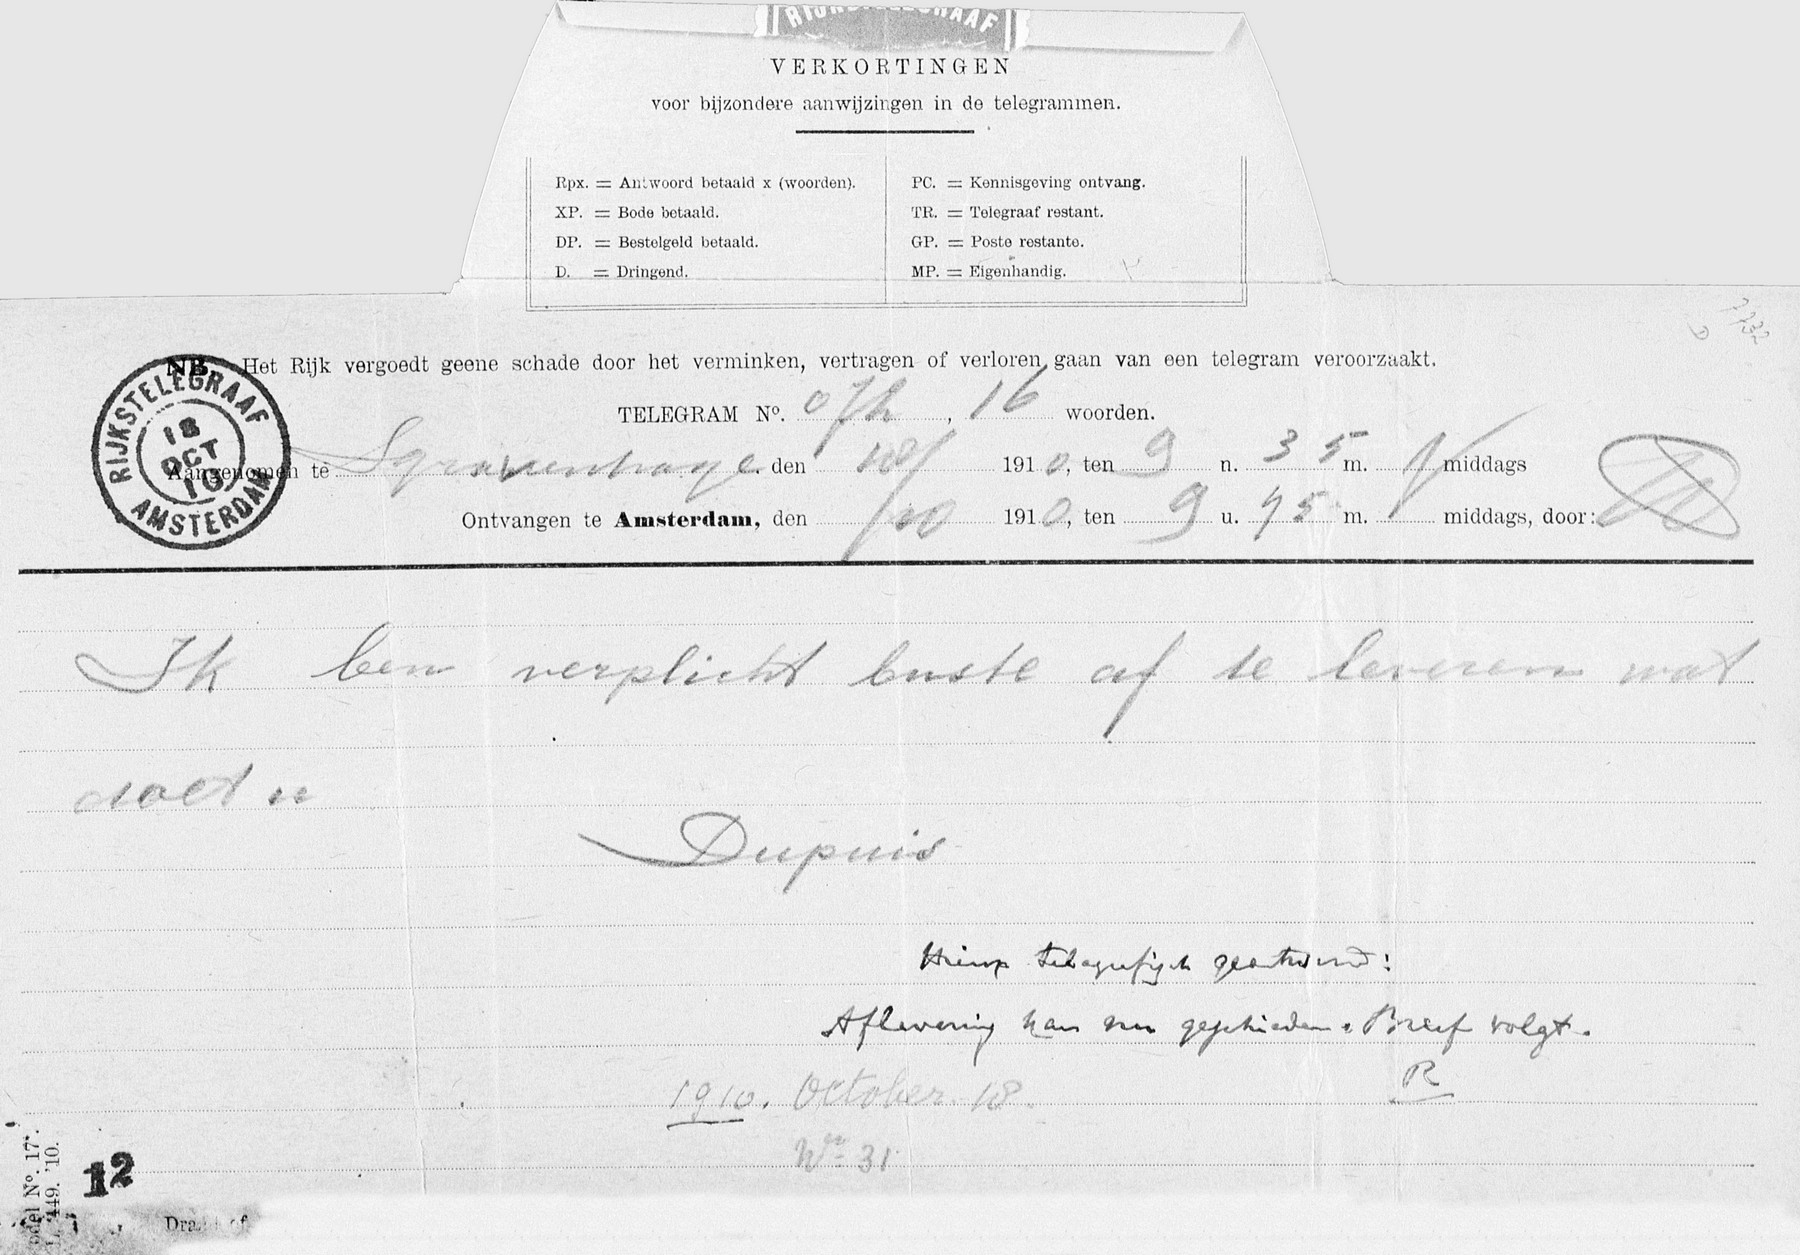 RIJKSTELEGRAAF
VERKORTINGEN
voor bijzondere aanwijzingen in de telegrammen.
Rpx. = Antwoord betaald x (woorden). PC. = Kennisgeving ontvang.
XP. = Bode betaald. TR. = Telegraaf restant.
DP. = Bestelgeld betaald. GP. = Poste restante.
D. = Dringend. MP. = Eigenhandig.
7732
NB. Het Rijk vergoedt geene schade door het verminken, vertragen of verloren gaan van een telegram veroorzaakt.
RIJKSTELEGRAAF
18
OCT
10
AMSTERDAM
TELEGRAM No. , 16 woorden.
Aangenomen te Sgravenhage den 18/ 1910, ten 9 u. 35 m. middags
Ontvangen te Amsterdam, den /10 1910, ten 9 u. 45 m. middags, door:
Ik ben verplicht buste af te leveren wat
doet u
Dupuis
Hierop telegrafisch geantwoord:
Aflevering kan nu geschieden. Brief volgt.
R
1910. October 18.
No 31
odel No. 17.
449. '10.
12